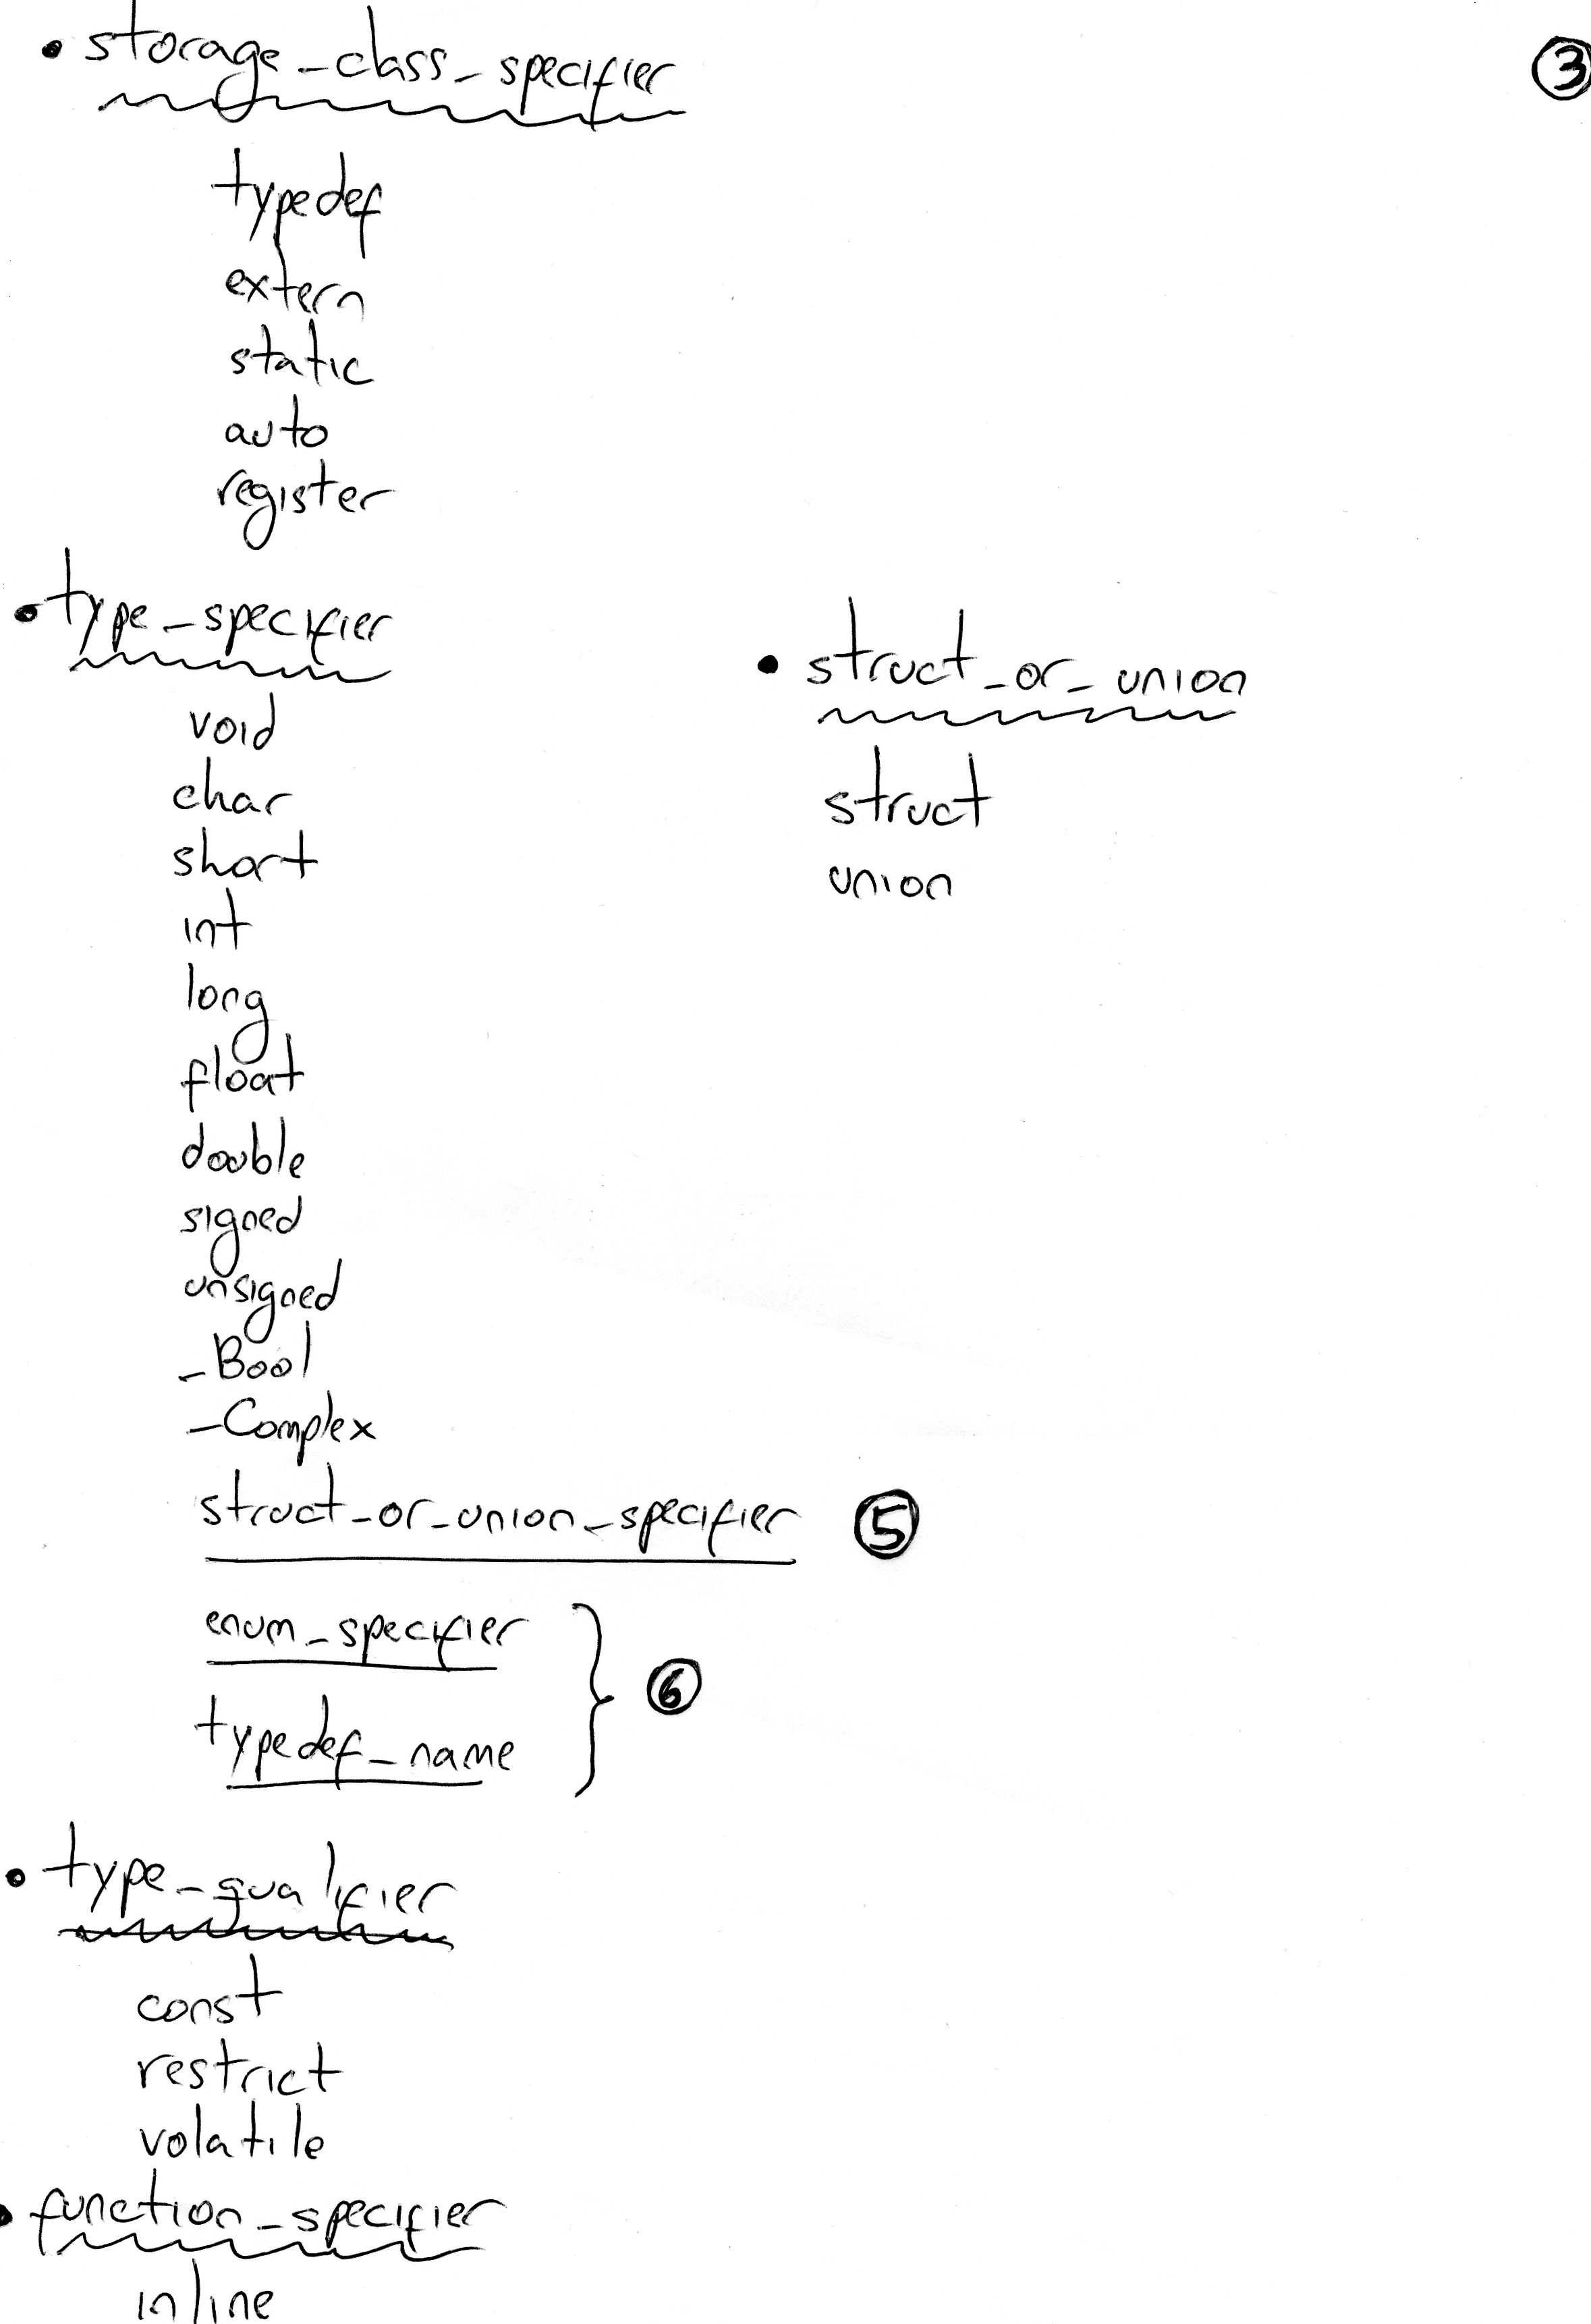 • storage_class_specifier
③
typedef
extern
static
auto
register
• type_specifier
void
char
short
int
long
float
double
signed
unsigned
_Bool
_Complex
struct_or_union_specifier ⑤
enum_specifier
typedef_name
⑥
• struct_or_union
struct
union
• type_qualifier
const
restrict
volatile
• function_specifier
inline